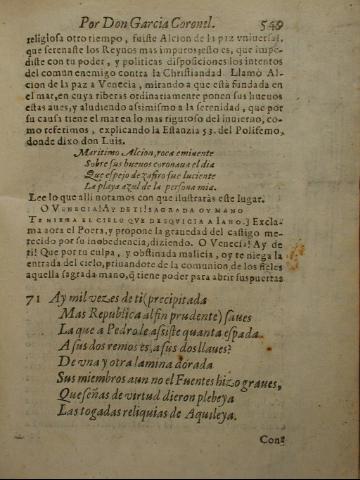 Por Don Garcia Coronel. 549
religiosa otro tiempo, fuiste Alcion de la paz vniuersal,
que serenaste los Reynos mas impuros; esto es, que impe-
diste con tu poder, y politicas disposiciones los intentos
del comun enemigo contra la Christiandad. Llamò Al-
cion de la paz a Venecia, mirando a que està fundada en
el mar, en cuya riberas ordinariamente ponen sus hueuos
estas aues, y aludiendo assimismo a la serenidad, que por
su causa tiene el mar en lo mas riguroso del inuierno, co-
mo referimos, explicando la Estanzia 53. del Polifemo,
donde dixo don Luis.
Maritimo Alcion, roca eminente
Sobre sus hueuos coronaua el dia
Que espejo de zafiro fue luciente
La playa azul de la persona mia.
Lee lo que alli notamos con que ilustraràs este lugar.
O VENECIA! AY DE TI! SAGRADA OY MANO
TE NIEGA EL CIELO QVE DESQVICIA A IANO.) Excla-
ma aora el Poeta, y propone la grauedad del castigo me-
recido por su inobediencia, diziendo. O Venecia! Ay de
ti! Que por tu culpa, y obstinada malicia, oy te niega la
entrada del cielo, priuandote de la comunion de los fieles
aquella sagrada mano, q̃ tiene poder para abrir sus puertas
71 Ay mil vezes de ti (precipitada
Mas Republica al fin prudente) saues
La que a Pedro le assiste quanta espada
A sus dos remos es, a sus dos llaues?
De vna y otra lamina dorada
Sus miembros aun no el Fuentes hizo graues,
Que señas de virtud dieron plebeya
Las togadas reliquias de Aquileya.
Con